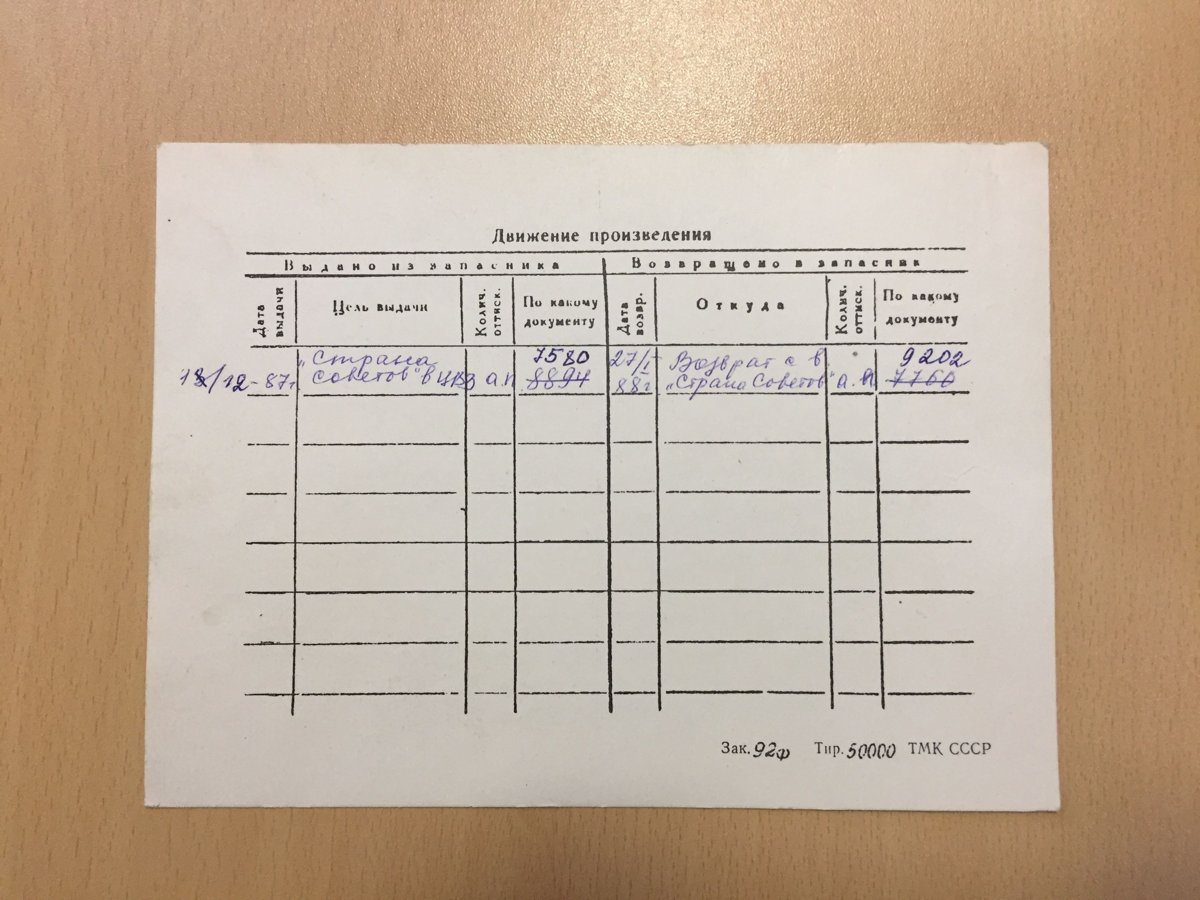 Движение произведения
Выдано из запасника Возвращено в запасник
Дата выдачи Цель выдачи Колич. оттиск. По какому документу Дата возвр. Откуда Колич. оттиск. По какому документу
"Страна 7580 27/I Возврат с в 9202
/12-87г Советов" в ЦВЗ а.п 8894 88г "Страна Советов" а.п 7760
Зак. 92ф Тир. 50000 ТМК СССР